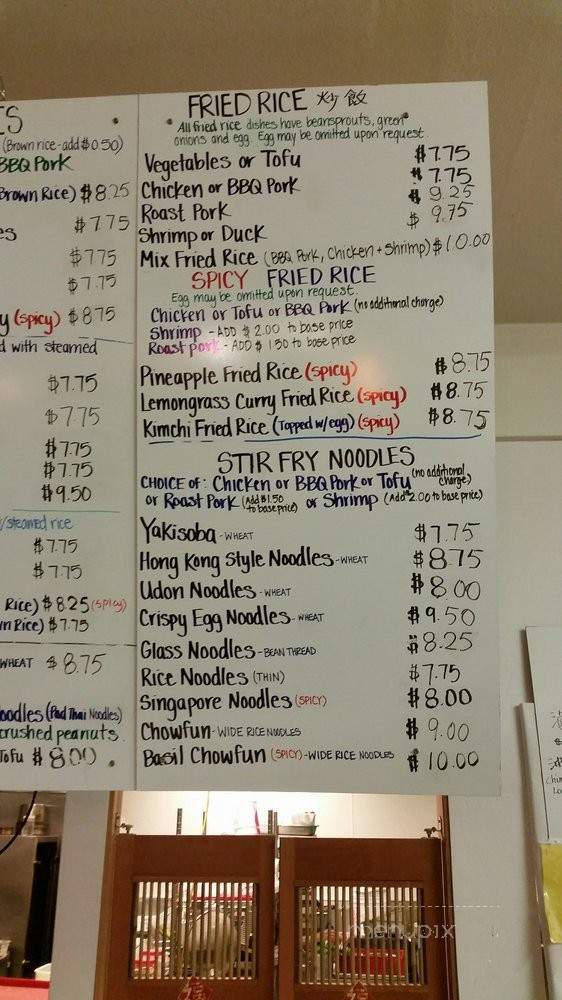 ES
(Brown rice-add $0.50)
BBQ PORK
Brown Rice) $8.25
es $7.75
$7.75
$7.75
y (spicy) $8.75
d with steamed
$7.75
$7.75
$7.75
$7.75
$9.50
/steamed rice
$7.75
$7.75
Rice) $8.25 (spicy)
n Rice) $7.75
WHEAT $8.75
oodles (Pad Thai Noodles)
crushed peanuts.
Tofu $8.00
FRIED RICE 炒飯
All fried rice dishes have beansprouts, green
onions and egg. Egg may be omitted upon request
Vegetables or Tofu $7.75
Chicken or BBQ Pork $7.75
Roast Pork $9.25
Shrimp or Duck $9.75
Mix Fried Rice (BBQ Pork, Chicken + Shrimp) $10.00
SPICY FRIED RICE
Egg may be omitted upon request.
Chicken or Tofu or BBQ Pork (no additional charge)
Shrimp - ADD $2.00 to base price
Roast pork - ADD $1.50 to base price
Pineapple Fried Rice (spicy) $8.75
Lemongrass Curry Fried Rice (spicy) $8.75
Kimchi Fried Rice (Topped w/egg) (spicy) $8.75
STIR FRY NOODLES
CHOICE OF: Chicken or BBQ Pork or Tofu (no additional charge)
or Roast Pork (Add $1.50 to base price) or Shrimp (Add $2.00 to base price)
Yakisoba - WHEAT $7.75
Hong Kong Style Noodles - WHEAT $8.75
Udon Noodles - WHEAT $8.00
Crispy Egg Noodles - WHEAT $9.50
Glass Noodles - BEAN THREAD $8.25
Rice Noodles (THIN) $7.75
Singapore Noodles (SPICY) $8.00
Chowfun - WIDE RICE NOODLES $9.00
Basil Chowfun (SPICY) - WIDE RICE NOODLES $10.00
menupix